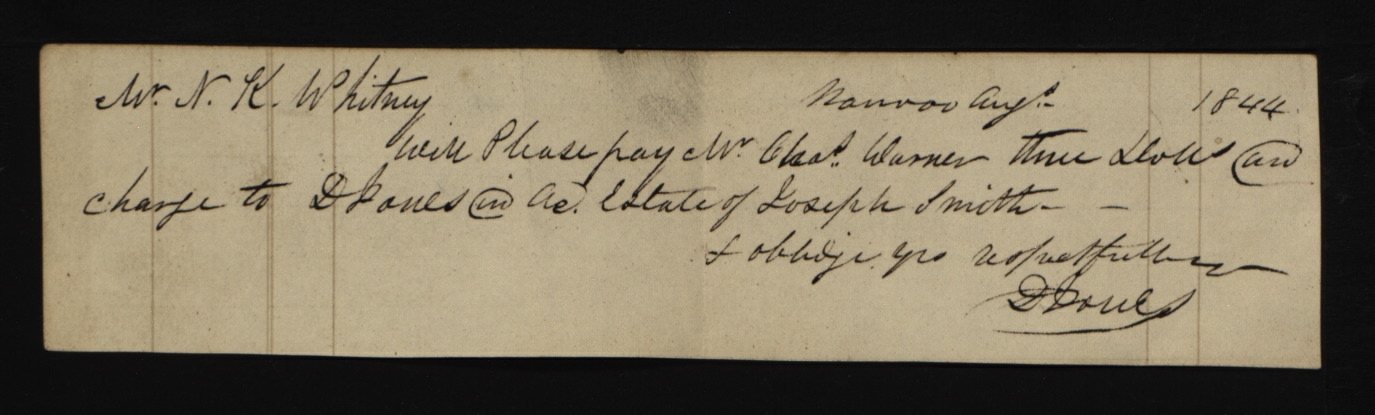 Mr. N. K. Whitney Nauvoo Augt. 1844.
Will Please pay Mr. Chas. Warner three Dolls and
charge to D Jones in Ac. Estate of Joseph Smith – –
& oblidge yrs respectfully
D Jones